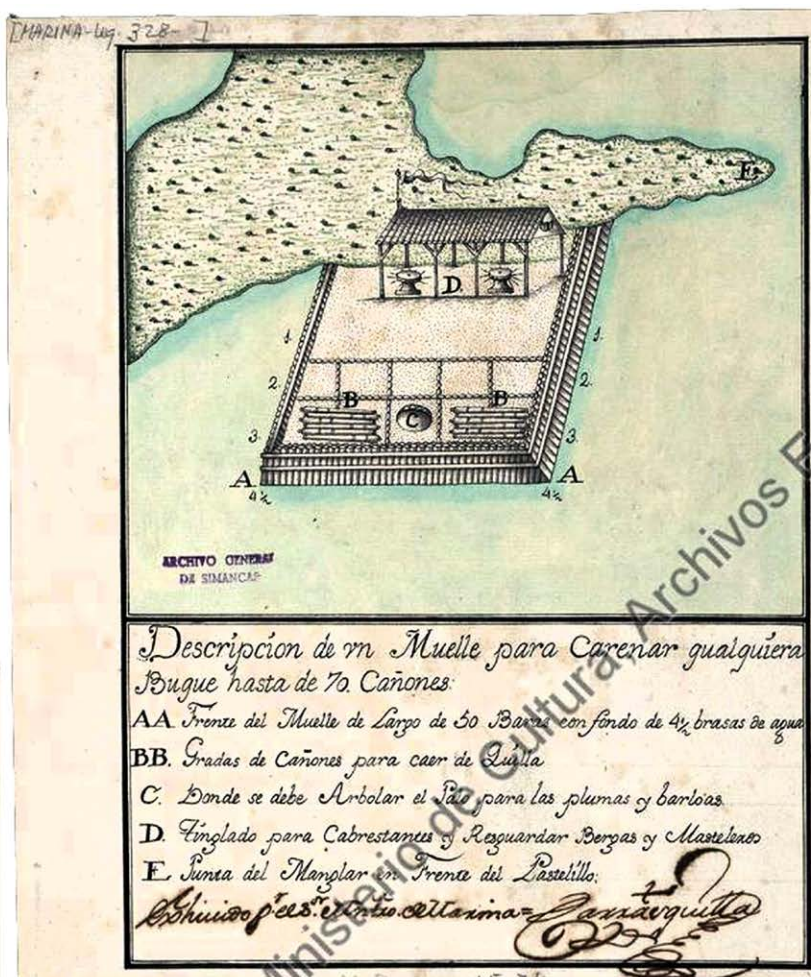 [MARINA-Leg. 328- ]
E
D
1.
1.
2.
2.
B
B
C
3.
3.
A
A
4½
4½
ARCHIVO GENERAL
DE SIMANCAS
Descripcion de vn Muelle para Carenar qualquiera
Buque hasta de 70. Cañones:
AA Frente del Muelle de Largo de 50 Baras con fondo de 4½ brasas de agua
BB. Gradas de Cañones para caer de Quilla
C. Donde se debe Arbolar el Palo para las plumas y barloas.
D. Tinglado para Cabrestantes y Resguardar Bergas y Masteleros
E Punta del Manglar en Frente del Pastelillo:
Marina=
Ministerio de Cultura, Archivos E